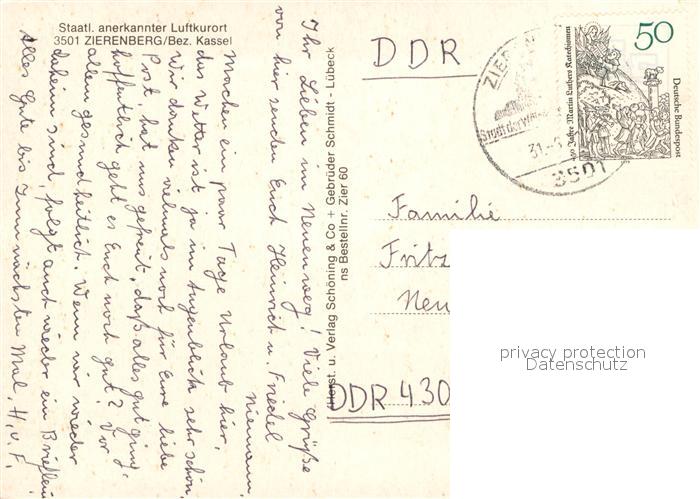 Staatl. anerkannter Luftkurort
3501 ZIERENBERG/Bez. Kassel
Ihr Lieben im Neuenweg! Viele Grüße
von hier senden Euch Heinrich u. Friedel
Niemann,
Machen ein paar Tage Urlaub hier,
das Wetter ist ja im Augenblick sehr schön,
Wir danken vielmals noch für Eure liebe
Post, hat uns gefreut, daß alles gut ging,
hoffentlich geht es Euch noch gut? Vor
allem gesundheitlich. Wenn wir wieder
daheim sind, folgt auch wieder ein Brieflein
Alles Gute bis zum nächsten Mal, H. u. F.
Herst. u. Verlag Schöning & Co + Gebrüder Schmidt - Lübeck
ns Bestellnr. Zier 60
DDR
Familie
Fritz
Neu
DDR 430
ZIEREN
Stadt der
31.
3501
50
Deutsche Bundespost
450 Jahre Martin Luthers Katechismen
privacy protection
Datenschutz